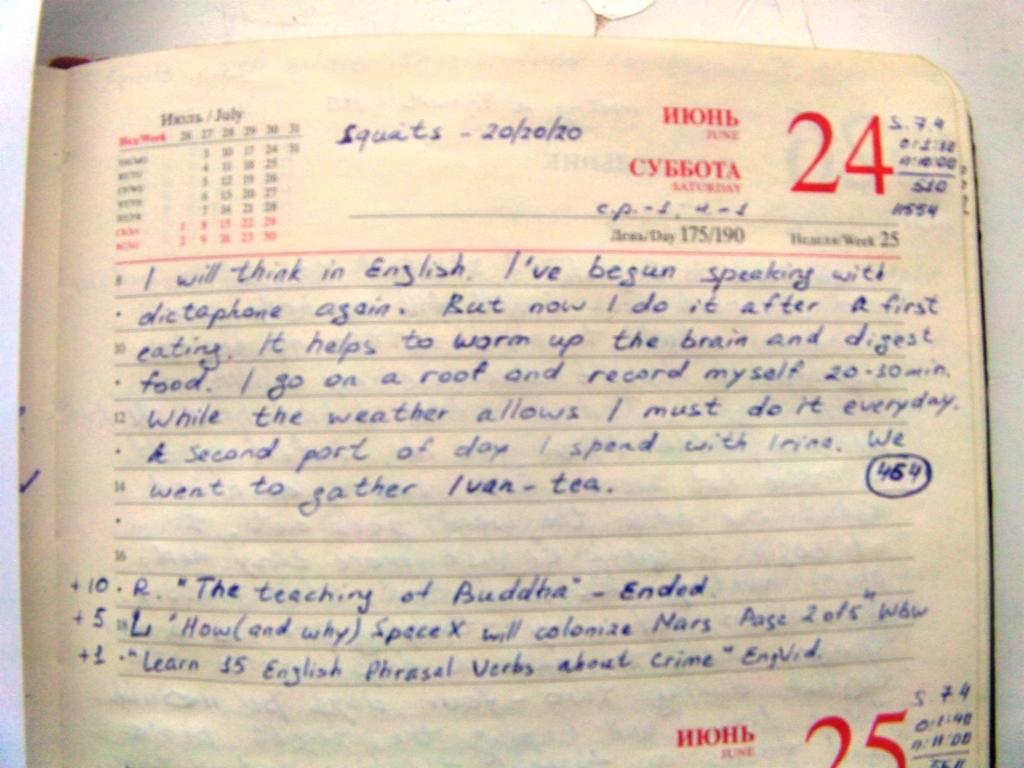 Июль / July
Нед/Week 26 27 28 29 30 31
3 10 17 24 31
4 11 18 25
5 12 19 26
6 13 20 27
7 14 21 28
1 8 15 22 29
2 9 16 23 30
Squats - 20/20/20
ИЮНЬ
JUNE
СУББОТА
SATURDAY
24
S. 7.4
510
11554
c.p.-1, ч.-1
День/Day 175/190
Неделя/Week 25
8 I will think in English. I've begun speaking with
dictaphone again. But now I do it after a first
10 eating. It helps to worm up the brain and digest
food. I go on a roof and record myself 20-30 min.
12 While the weather allows I must do it everyday.
A second part of day I spend with Irina. We
14 went to gather Ivan-tea.
454
16
+10 R. "The teaching of Buddha" - Ended.
+5 18 L "How (and why) SpaceX will colonize Mars Page 2 of 5" WbW
+1 "Learn 15 English Phrasal Verbs about Crime" EngVid.
ИЮНЬ
JUNE
25
S. 7.4
0:1:40
n: 11:00